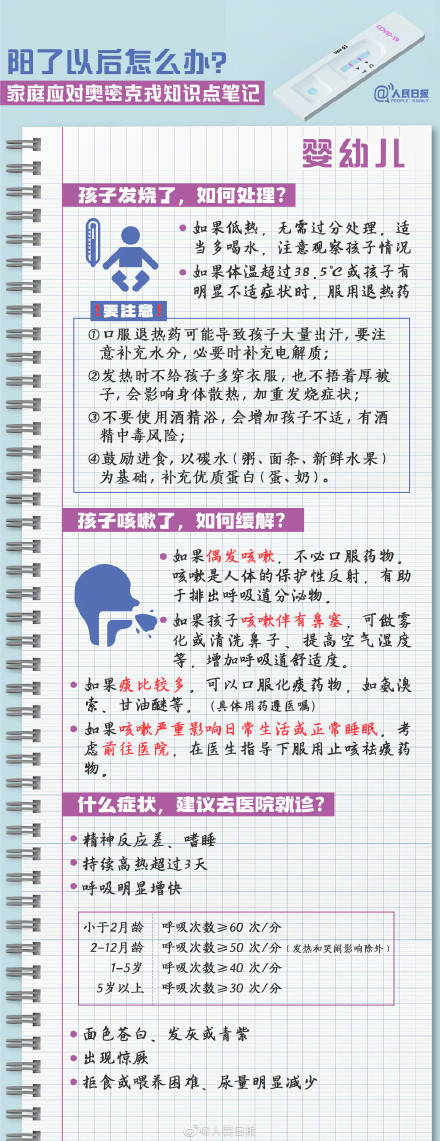 阳了以后怎么办?
家庭应对奥密克戎知识点笔记
COVID-19
C
T
@人民日报
PEOPLE'S DAILY
婴幼儿
孩子发烧了，如何处理?
如果低热，无需过分处理，适
当多喝水，注意观察孩子情况
如果体温超过38.5℃或孩子有
明显不适症状时，服用退热药
!要注意!
①口服退热药可能导致孩子大量出汗，要注
意补充水分，必要时补充电解质；
②发热时不给孩子多穿衣服，也不捂着厚被
子，会影响身体散热，加重发烧症状；
③不要使用酒精浴，会增加孩子不适，有酒
精中毒风险；
④鼓励进食，以碳水（粥、面条、新鲜水果）
为基础，补充优质蛋白（蛋、奶）。
孩子咳嗽了，如何缓解?
如果偶发咳嗽，不必口服药物。
咳嗽是人体的保护性反射，有助
于排出呼吸道分泌物。
如果孩子咳嗽伴有鼻塞，可做雾
化或清洗鼻子、提高空气湿度
等，增加呼吸道舒适度。
如果痰比较多，可以口服化痰药物，如氨溴
索、甘油醚等。（具体用药遵医嘱）
如果咳嗽严重影响日常生活或正常睡眠，考
虑前往医院，在医生指导下服用止咳祛痰药
物。
什么症状，建议去医院就诊?
精神反应差、嗜睡
持续高热超过3天
呼吸明显增快
小于2月龄 呼吸次数≥60 次/分
2-12月龄 呼吸次数≥50 次/分（发热和哭闹影响除外）
1-5岁 呼吸次数≥40 次/分
5岁以上 呼吸次数≥30 次/分
面色苍白、发灰或青紫
出现惊厥
拒食或喂养困难、尿量明显减少
@人民日报